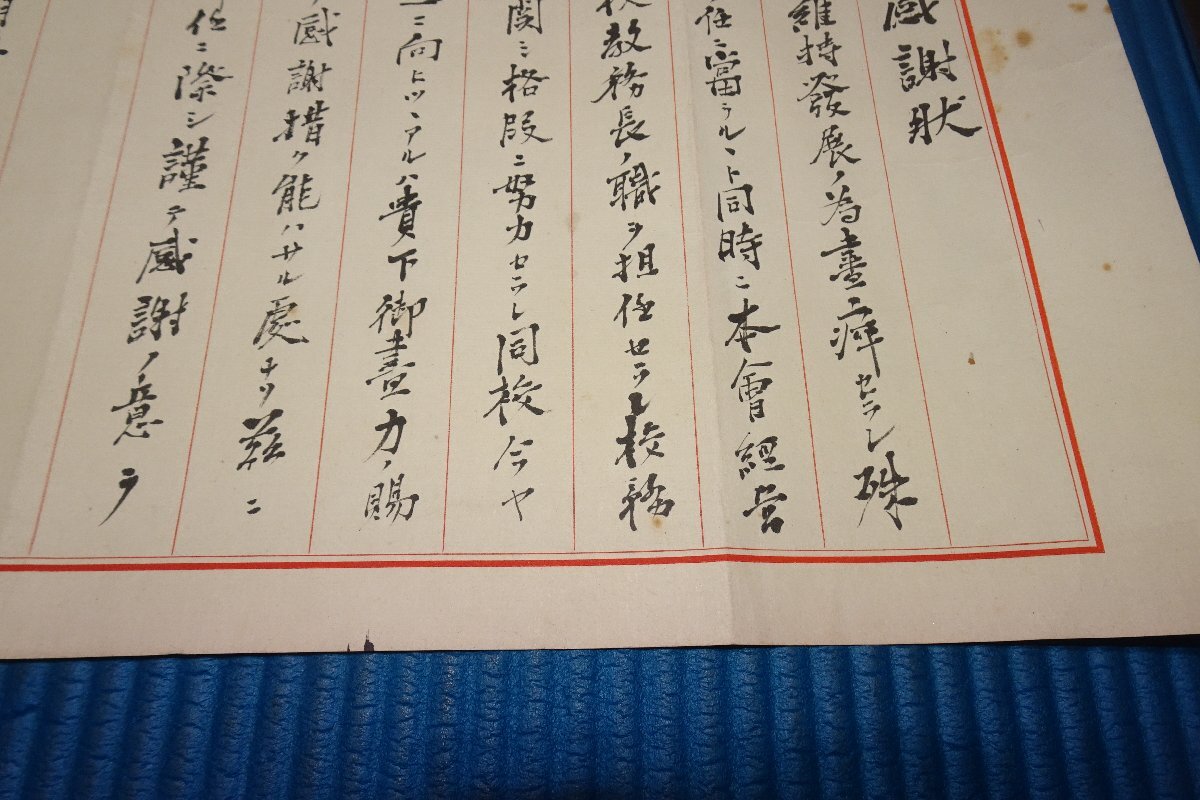 感謝狀
維持發展ノ為盡瘁セラレ殊
任ニ當ラルヽト同時ニ本會經営
教務長ノ職ヲ担任セラレ校務
関ミ格段ニ努力セラレ同校今ヤ
ニ向ヒツヽアルハ貴下御盡力ノ賜
感謝措ク能ハサル處ナリ茲ニ
任ニ際シ謹テ感謝ノ意ヲ